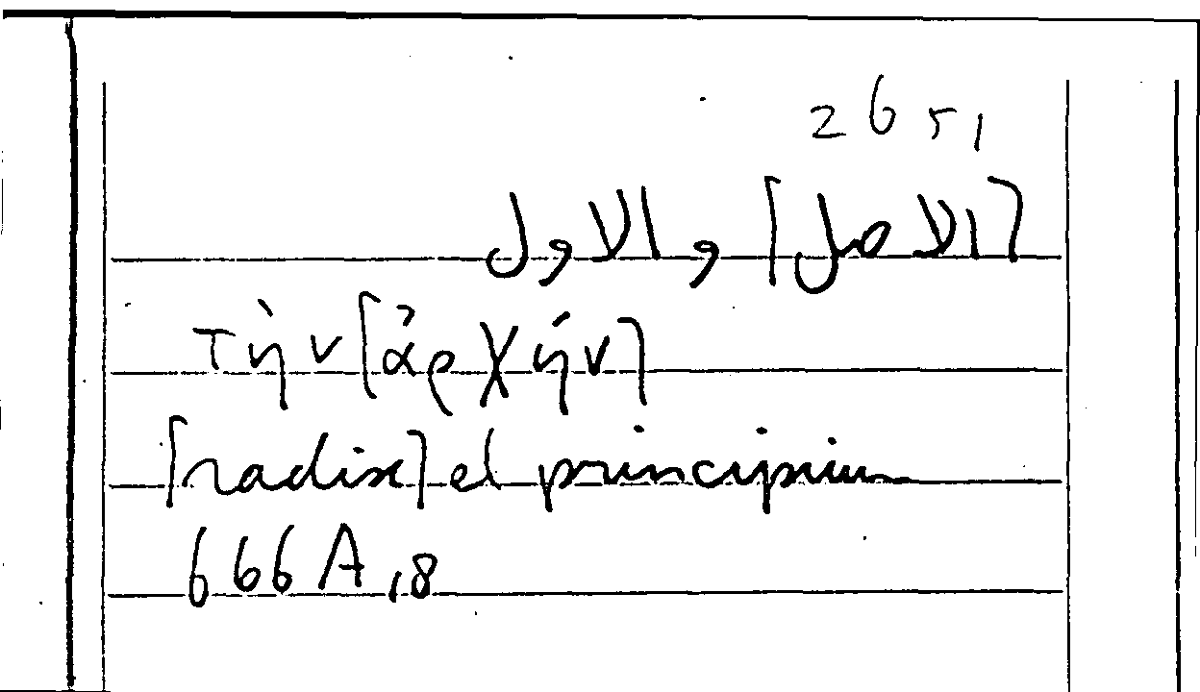 265,1
⌈الاصل⌉ والاول
τὴν ⌈ἀρχήν⌉
⌈radix⌉ et principium
666A,8